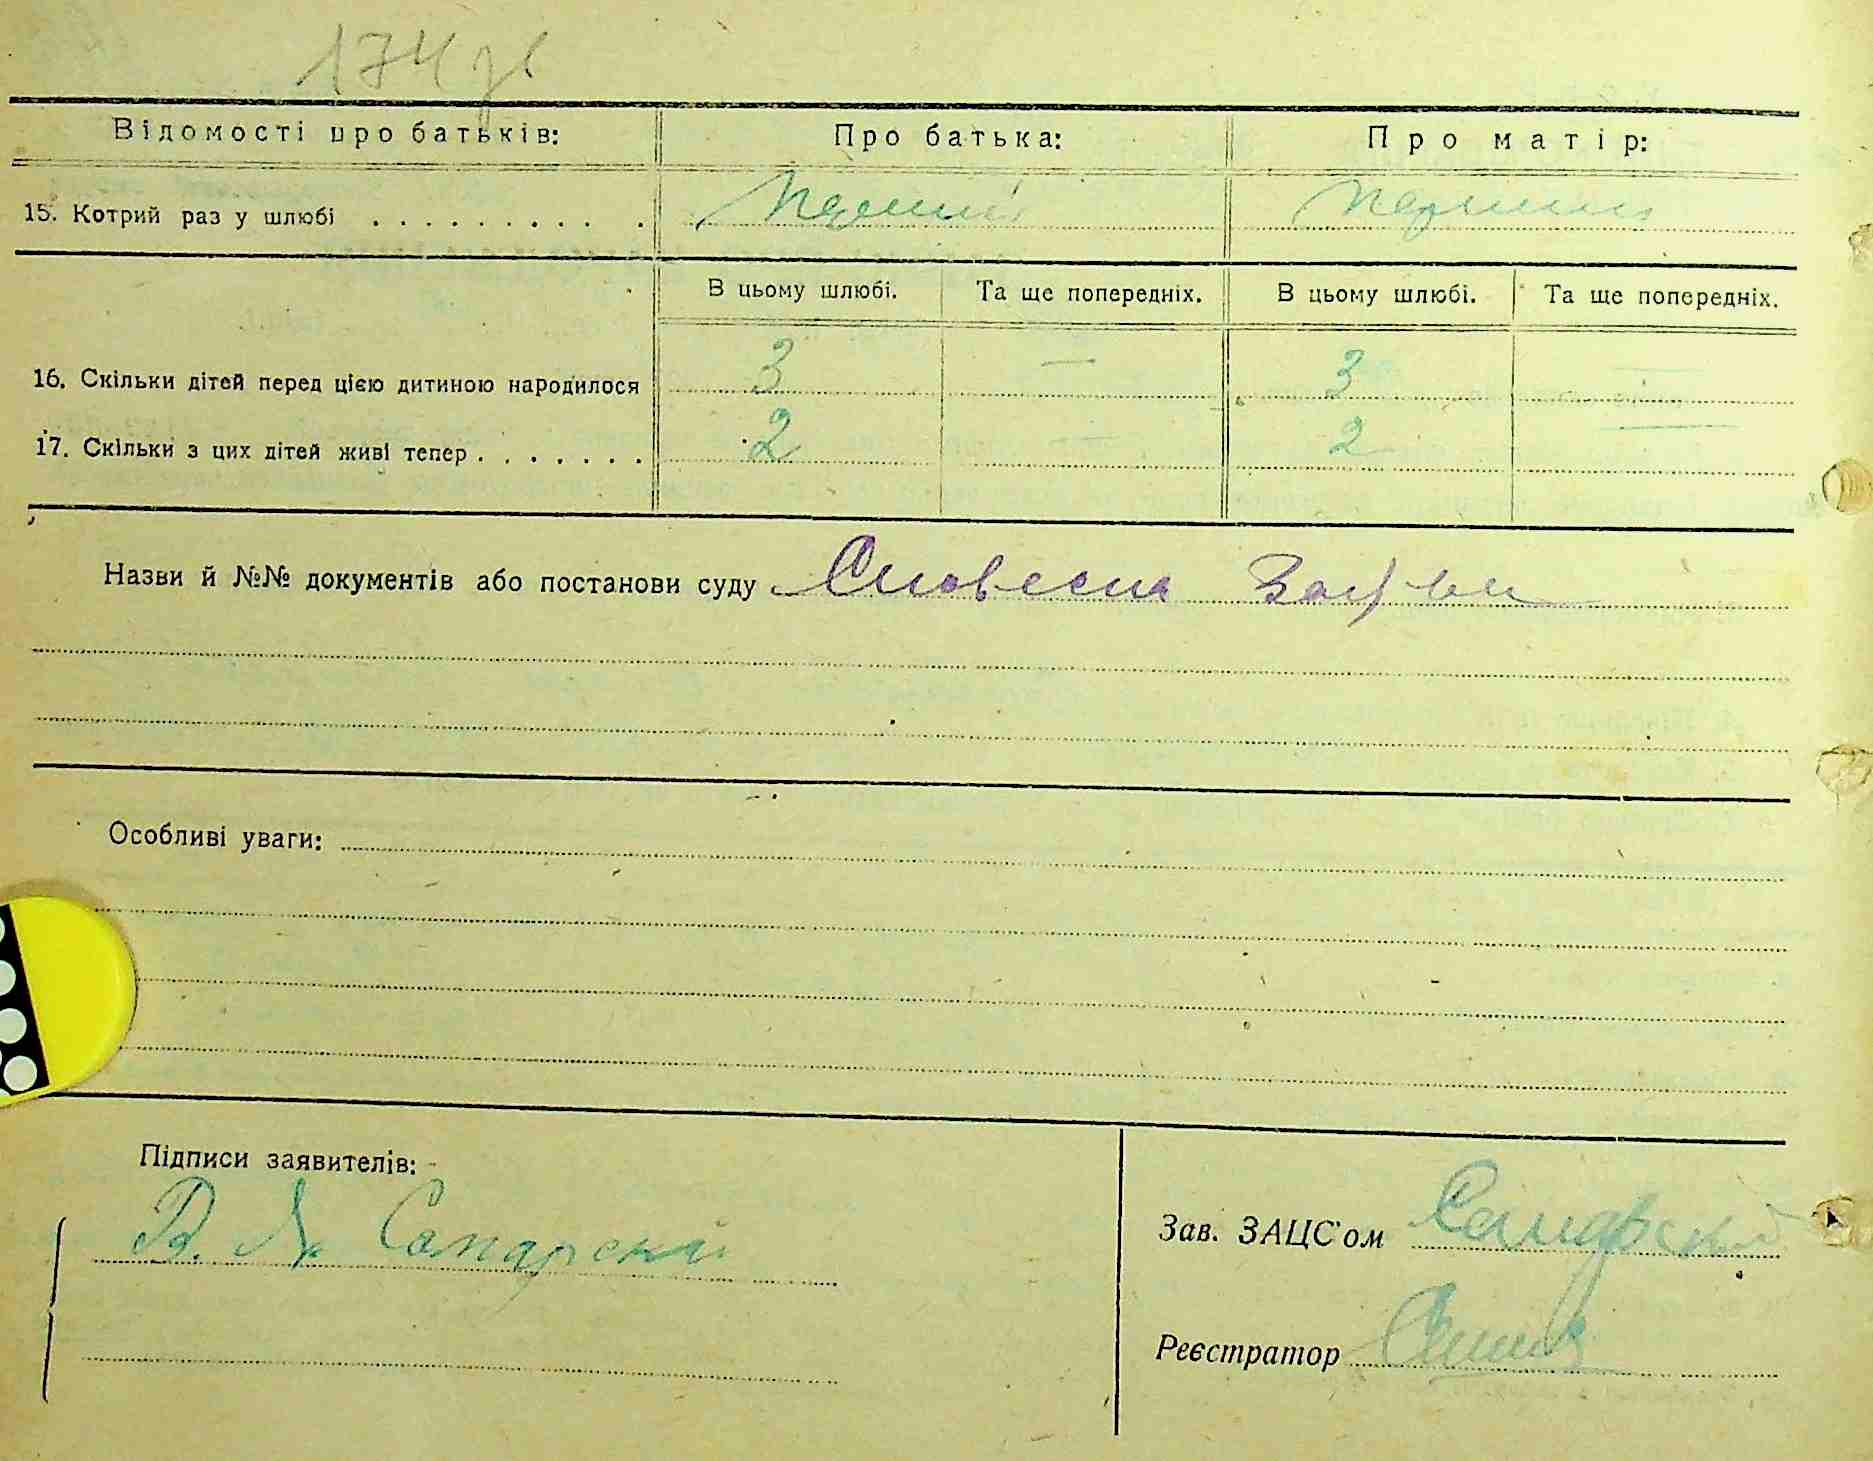 174 зв
Відомості про батьків: Про батька: Про матір:
15. Котрий раз у шлюбі . . . . . . . . . . Перший Перший
В цьому шлюбі. Та ще попередніх. В цьому шлюбі. Та ще попередніх.
16. Скільки дітей перед цією дитиною народилося 3 — 3 —
17. Скільки з цих дітей живі тепер . . . . . . . 2 — 2 —
Назви й №№ документів або постанови суду Словесна Заява
Особливі уваги:
Підписи заявителів:
В. Я. Самарский
Зав. ЗАЦС'ом Самарський
Реєстратор